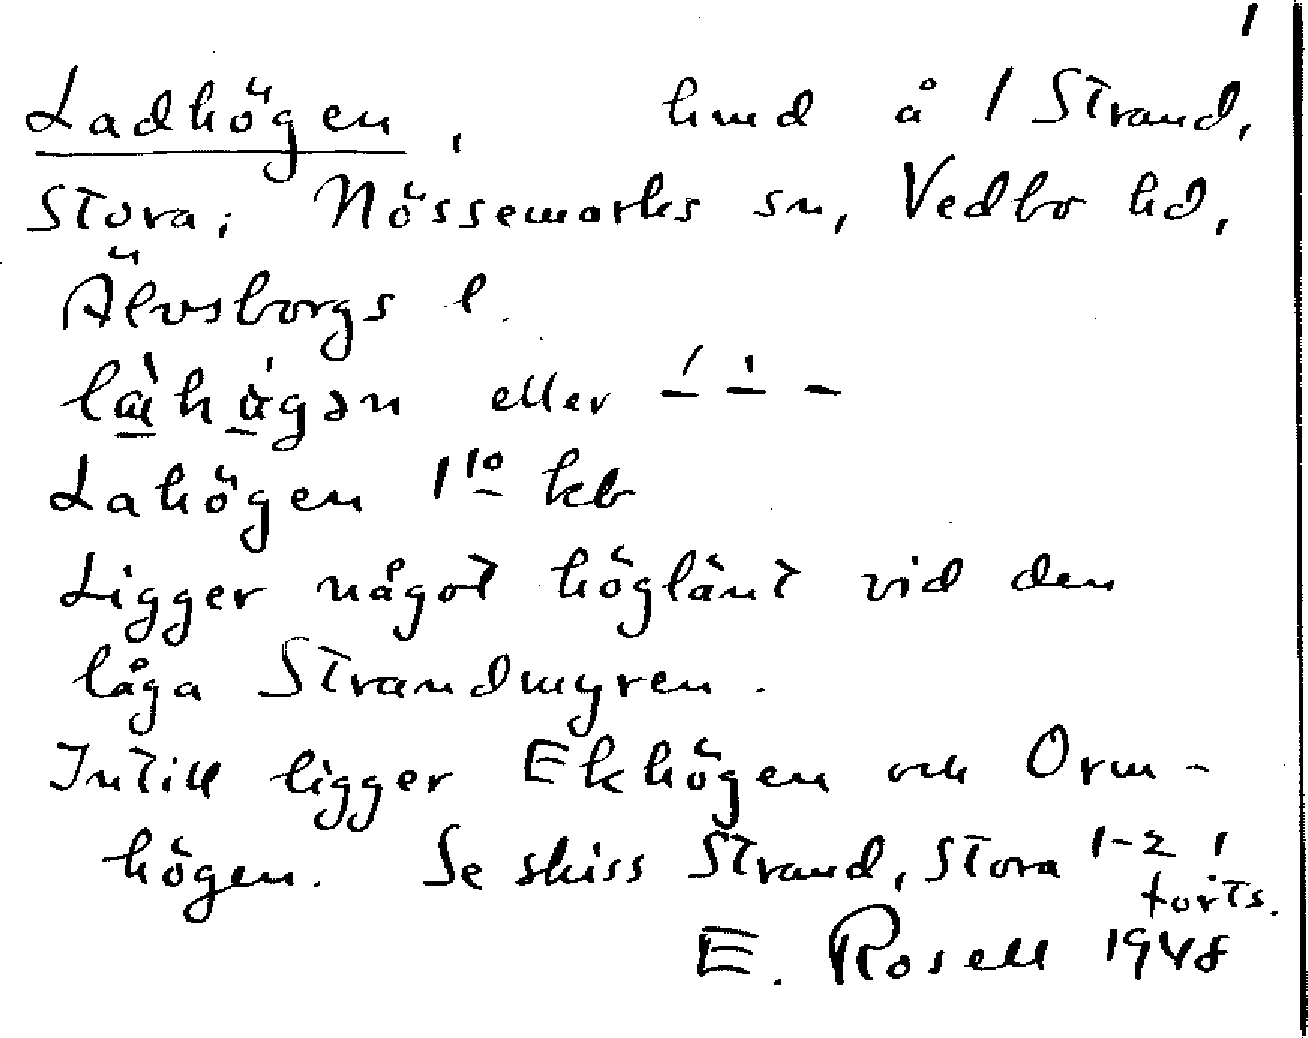 1
Ladhögen, hmd å 1 Strand,
Stora; Nössemarks sn, Vedbo hd,
Älvsborgs l.
eller
Lahögen 1¹⁰ kb
Ligger något höglänt vid den
låga Strandmyren.
Intill ligger Ekhögen och Orm-
högen. Se skiss Strand, Stora 1-2!
forts.
E. Rosell 1948